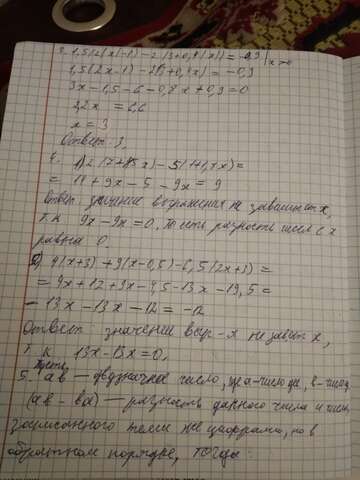 1,5(2|x|-1) - 2(3+0,4|x|) = -0,9 | x>0
1,5(2x-1) - 2(3+0,4x) = -0,9
3x - 1,5 - 6 - 0,8x + 0,9 = 0
2,2x = 6,6
x = 3
Ответ: 3.
4. 1) 2(7+4,5x) - 5(1+1,8x) =
= 14 + 9x - 5 - 9x = 9
Ответ: значение выражения не зависит от x,
т.к. 9x - 9x = 0, то есть разность чисел с x
равна 0.
2) 4(x+3) + 9(x-0,5) - 6,5(2x+3) =
= 4x + 12 + 9x - 4,5 - 13x - 19,5 =
= 13x - 13x - 12 = -12
Ответ: значение выр-я не зав. от x,
т.к. 13x - 13x = 0.
5. Пусть ab - двузначное число, где a - число дес, b - число
(ab - ba) - разность данного числа и числа,
записанного теми же цифрами, но в
обратном порядке, тогда: